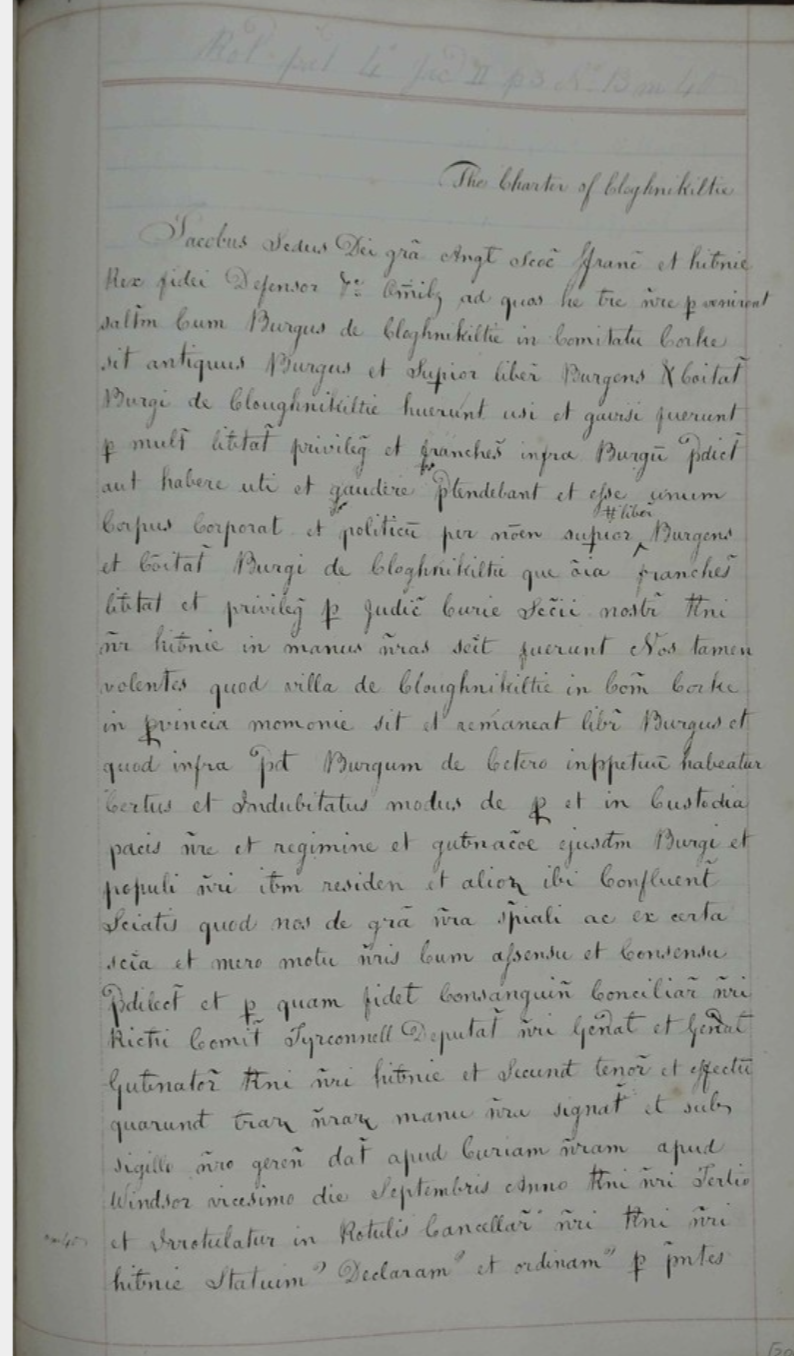 Rot pat 4 Jac II p 3 No 13 m 4
The Charter of Cloghnikiltie
Jacobus Scdus Dei grā Angł Scoč ffranč et hib̄nie
Rex fidei Defensor &c Om̄ib3 ad quas he łre n̄re p̱ venirent
sałtm Cum Burgus de Cloghnikiltie in Comitatu Corke
sit antiquus Burgus et Supior liber̄ Burgens & Coitat̄
Burgi de Cloughnikiltie huerunt usi et gavisi fuerunt
p̱ mult̄ lib̄tat̄ privileg̃ et franches̄ infra Burgū p̄dict̄
aut habere uti et gaudere p̄tendebant et esse unum
# liber̄
Corpus Corporat et politicū per nōen supior ‸ Burgens
et Cōitat̄ Burgi de Cloghnikiltie que ōia franches̄
lib̄tat et privileg̃ p̱ Judič Curie Sčcii nostr̄ Rni
n̄r hib̄nie in manus n̄ras seit̄ fuerunt Nos tamen
volentes quod villa de Cloughnikiltie in Com̄ Corke
in p̱vincia momonie sit et remaneat libr̄ Burgus et
quod infra p̄d Burgum de Cetero inppetuū habeatur
Certus et Indubitatus modus de p̱ et in Custodia
pacis n̄re et regimine et gub̄nac̄oe ejusdm Burgi et
populi n̄ri ib̄m residen et alioꝝ ibi Confluent̄
Sciatis quod nos de grā n̄ra sp̄iali ac ex certa
scīa et mero motu n̄ris Cum assensu et Consensu
P̄dilect̄ et p̱ quam fidel̄ Consanguin̄ Conciliar̄ n̄ri
Rici Comit̄ Tyrconnell Deputat̄ n̄ri Gen̄al et Gen̄al
Gub̄nator̄ Rni n̄ri hib̄nie et Secund tenor̄ et effectū
quarund łraꝝ n̄raꝝ manu n̄ra signat̄ et sub
sigillo n̄ro geren̄ dat̄ apud Curiam n̄ram apud
Windsor vicesimo die Septembris Anno Rni n̄ri Tertio
et Irrotulatur in Rotulis Cancellar̄ n̄ri Rni n̄ri
hib̄nie Statuim⁹ Declaram⁹ et ordinam⁹ p̱ p̄ntes